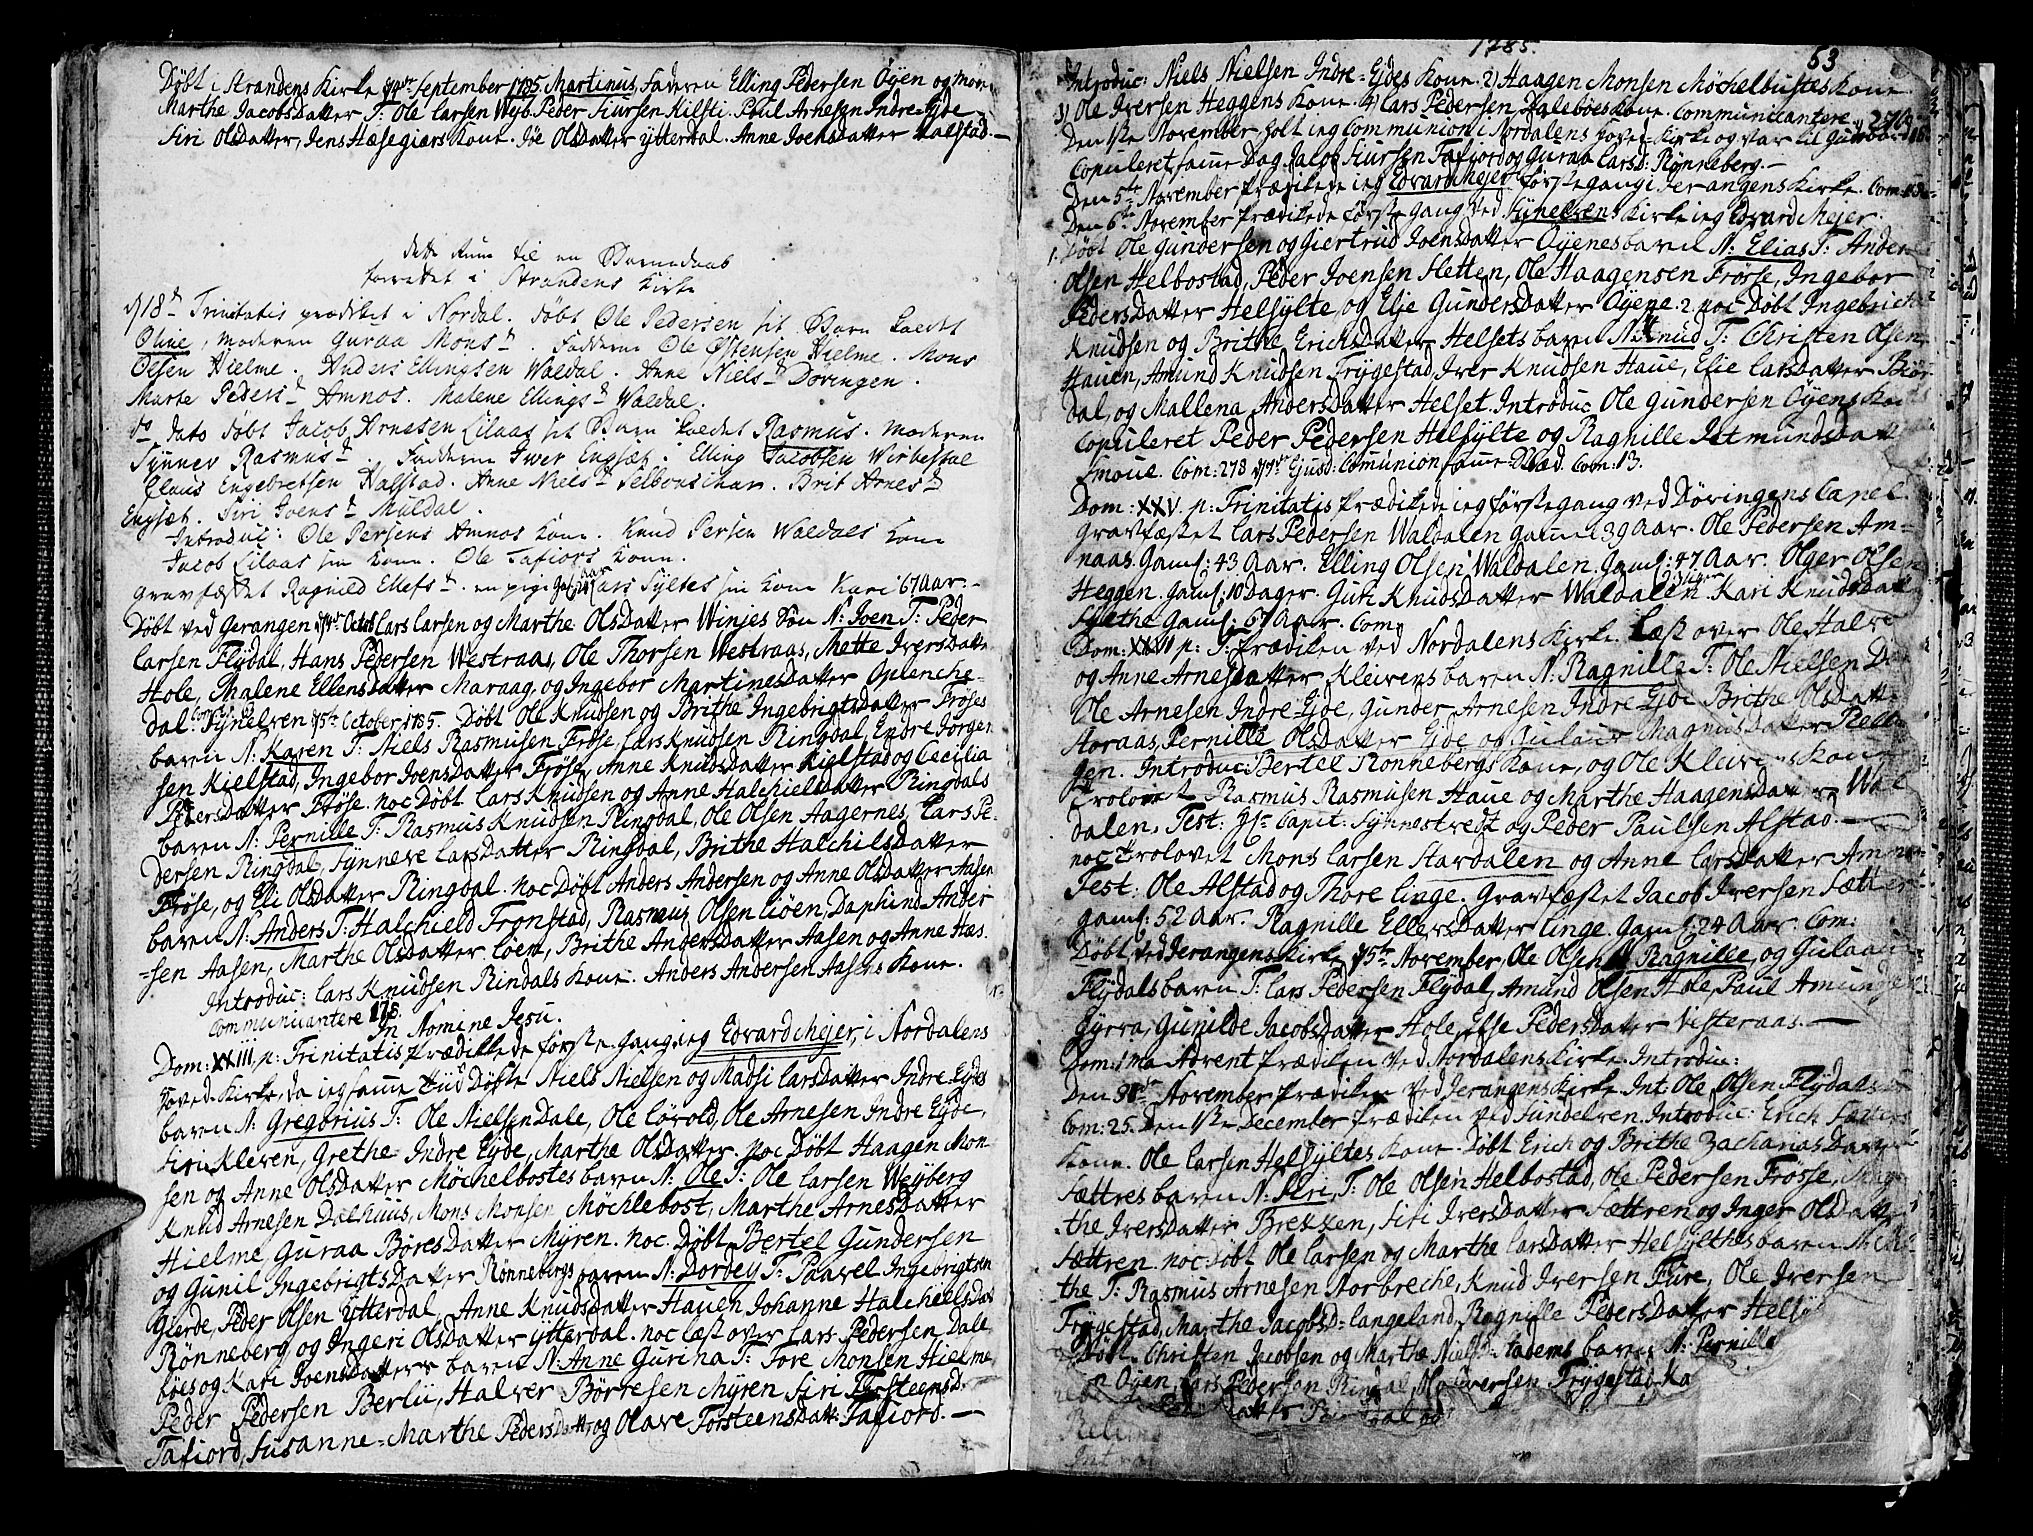 Døbt i Strandens Kirke September 1785. Martinus, Faderen Elling Pedersen Øyen og Moder
Marthe Jacobsdatter T: Ole Larsen Wyb. Peder Siursen Kilsti. Poul Arnesen Indre-Eyde
Siri Olsdatter, Jens Hæsegiærs Kone. Joe Olsdatter ytterdal. Anne Joensdatter Halstad.—
dette Rum til en Barnedaab
forrettet i Strandens Kirke
18de Trinitatis prædiket i Nordal. Døbt Ole Pedersen sit Barn kaldet
Oline, moderen Guraa Mons d. Fadderne Ole Østensen Hielme. Mons
Olsen Hielme. Anders Ellingsen Waldal. Anne Niels d Døvingen.
Marte Peders d Amnos. Malene Ellings d Waldal.
do dato døbt Jacob Arnesen Lilaas sit Barn kaldet Rasmus. Moderen
Synnev Rasmus d. Fadderne Iwer Engsæt. Elling Jacobsen
Claus Engebretsen Halstad. Anne Niels d Brit Arnes d
Engsæt. Siri Joens d Muldal.
Introduc: Ole Persens Amnos Kone. Knud Persen Waldals Kone
Jacob Lilaas sin Kone. Ole Tafiors Kone.
Gravfæstet Ragnild Ellefs d. en pige Lars Syltes sin Kone Kari 67 Aar.—
Døbt ved Gerangen Octob Lars Larsen og Marthe Olsdatter Winjes Søn N: Joen T: Peder
Larsen Flydal, Hans Pedersen Westraas, Ole Thorsen Westraas, Mette Iversdatter
Hole, Malene Ellensdatter Maraag, og Ingebor Martinesdatter Oplenche-
dal. Synelven 5te October 1785. Døbt Ole Knudsen og Brithe Ingebrigtsdatter Frøses
baren N: Karen T: Niels Rasmusen Frøse, Lars Knudsen Ringdal, Endre Jorgen
sen Kielstad, Ingebor Joensdatter Frøse, Anne Knudsdatter Kielstad og Cecilia
Pedersdatter Frøse. noc Døbt Lars Knudsen og Anne Halchielsdatter Ringdals
baren N: Pernille T: Rasmus Knudsen Ringdal, Ole Olsen Aagernes, Lars Pe-
dersen Ringdal, Synneve Larsdatter Ringdal, Brithe Halchilsdatter
Frøse, og Eli Olsdatter Ringdal. noc Døbt Anders Andersen og Anne Olsdatter Aasen
baren N: Anders T: Halchield Fronstad, Rasmus Olsen Liöen, Daphind Ander
-sen Aasen, Marthe Olsdatter Loen, Brithe Andersdatter Aasen og Anne Has.
Introduc: Lars Knudsen Rindals Kone. Anders Andersen Aasens Kone.
Communicantere 175.
In Nomine Jesu.
Dom: XXIII p: Trinitatis Prædikede første gang ieg Edvard Mejer, i Nordalens
hoved-Kirke, da ieg samme tiid Døbte Niels Nielsen og Madsi Larsdatter Indre-Eydes
baren N: Gregorius T: Ole Nielsen Dale, Ole Lörold, Ole Arnesen Indre Eyde,
Siri Kleven, Grethe Indre Eyde, Marthe Olsdatter. noc Døbt Haagen Mon-
sen og Anne Olsdatter Möchelbostes baren N: Ole T: Ole Larsen Weyberg
Knud Arnesen Dalhuus, Mons Monsen Möchlebost, Marthe Arnesdatter
Hielme Guraa Böresdatter Myren. noc Døbt Bertel Gundersen
og Gunil Ingebrigtsdatter Rønnebergs baren N: Dordey T: Paavel Ingebrigtsen
Gierde, Peder Olsen Ytterdal, Anne Knudsdatter Hauen Johanne Halchielsdat
Rønneberg og Ingeri Olsdatter ytterdal. noc læst over Lars Pedersen Dale
böes og Kari Joensdatters baren N: Anne Gurina T: Tore Monsen Hielme
Peder Pedersen Berlii, Halver Börresen Myren Siri Torsteensd.
Tafiord, Susanne-Marthe Pedersdatter og Olave Torsteensdatt. Tafiord.—
1785.
53
Introduc: Niels Nielsen Indre-Eydes Kone. 2) Haagen Monsen Möchelbustes Kone
3) Ole Iversen Heggens Kone 4) Lars Pedersen Daleböes Kone. Communicantere
Den 1ste November holt ieg Communion i Nordalens hoved-Kirke og var til Gudsbord
Copuleret samme Dag Jacob Siursen Tafiord og Guraa Larsd: Rønneberg.—
Den 5te November Prædikede ieg Edvard Mejer første gang i Gerangens Kirke.
Den 6te November Prædikede første gang ved Synelvens Kirke ieg Edvard Mejer.
1. Døbt Ole Gundersen og Giertrud Joensdatter Oyenes baren N: Elias T: Anders
Olsen Helbostad, Peder Joensen Sletten, Ole Haagensen Frøse, Ingebor
Pedersdatter Helsylte, og Elje Gundersdatter Oyene. 2. noc Døbt Ingebricht
Knudsen og Brithe Erichsdatter Helsets baren N: Knud T: Christen Olsen
Hauen, Amund Knudsen Frygestad, Iver Knudsen Haue, Elie Larsdatter Biør
dal, og Mallena Andersdatter Helset. Introduc Ole Gundersen Oyens Kone
Copuleret Peder Pedersen Helsylte og Ragnille Jetmundsdatt
Smoue. Com: 278 Ejusd: Communion samme Com: 13.
Dom: XXV. p: Trinitatis Prædikede ieg første gang ved Døvingens Capel.
Gravfæstet Lars Pedersen Waldalen Gamel 39 Aar. Ole Pedersen Am-
naas. Gaml: 43 Aar. Elling Olsen Waldalen. Gaml: 47 Aar. Olger Olsen
Heggen. Gaml: 10 Dager. Guri Knudsdatter Waldalen Kari Knudsdatt
Sylthe Gaml: 67 Aar. Com:
Dom: XXVI p: T: Prædiken ved Nordalens Kirke. Læst over Ole Halvo
og Anne Arnesdatter Kleivens baren N: Ragnille T: Ole Nielsen Dale
Ole Arnesen Indre Eyde, Gunder Arnesen Indre Eyde Brithe Olsdatt.
Storaas, Pernille Olsdatter Eyde og Gulaug Magnusdatter Redin
gen. Introduc: Bertel Rønnebergs Kone, og Ole Kleivens Kone
Trolovet Rasmus Rasmusen Haue og Marthe Haagensdatter Wal
dalen, Test: Hr Capit: Synnestvedt og Peder Paulsen Alstad.—
noc Trolovet Mons Larsen Stardalen og Anne Larsdatter Amnaas
Test: Ole Alstad og Thore Linge. Gravfæstet Jacob Iversen Sætter
Gaml: 52 Aar. Ragnille Ellersdatter Linge. Gaml: 24 Aar. Com:
Døbt ved Gerangens Kirke 5te November, Ole Olsen N Ragnille, og Gulaaug
Flydals baren T: Lars Pedersen Flydal, Amund Olsen Hole, Paul Amundsen
Gyrra, Gunilde Jacobsdatter Hole, Else Pedersdatter Vesteraas.—
Dom: 1ma Advent Prædiken ved Nordalens Kirke. Introduc:
Den 30te November Prædiken ved Gerangens Kirke Int Ole Olsen Flydals
Com: 25. Den 1ste December Prædiken ved Sundelven. Introduc: Erich Sætters
Kone. Ole Larsen Helsyltes Kone. Døbt Erich og Brithe Zacharias Datter
Sættres baren N: Siri, T: Ole Olsen Helbostad, Ole Pedersen Frosse, Mar-
the Iversdatter Brekken, Siri Iversdatter Sættren og Inger Olsdatte
Sættren. noc Døbt Ole Larsen og Marthe Larsdatter Helsylthes baren N:
the T: Rasmus Arnesen Norbreche, Knud Iversen Fure, Ole Iversen
Frygestad, Marthe Jacobsd: Langeland, Ragnille Pedersdatter Helsy
Døbt Christen Jacobsen og Marthe Nielsd: Ladems baren N: Pernille
Oyen, Lars Pedersen Rindal, Iversen Frygestad, Ka
datter Rindal og